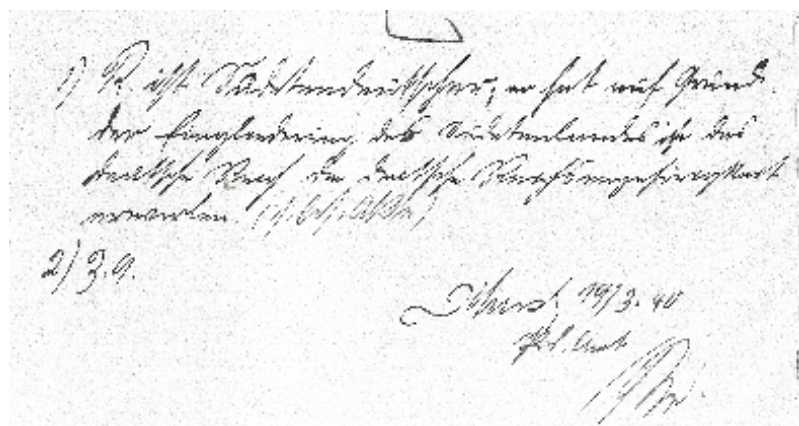 1) R. ist Sudetendeutscher; er hat auf Grund
der Eingliederung des Sudetenlandes in das
deutsche Reich die deutsche Reichsangehörigkeit
erworben.
2) Z. A.
19/3. 40
Pol. Amt